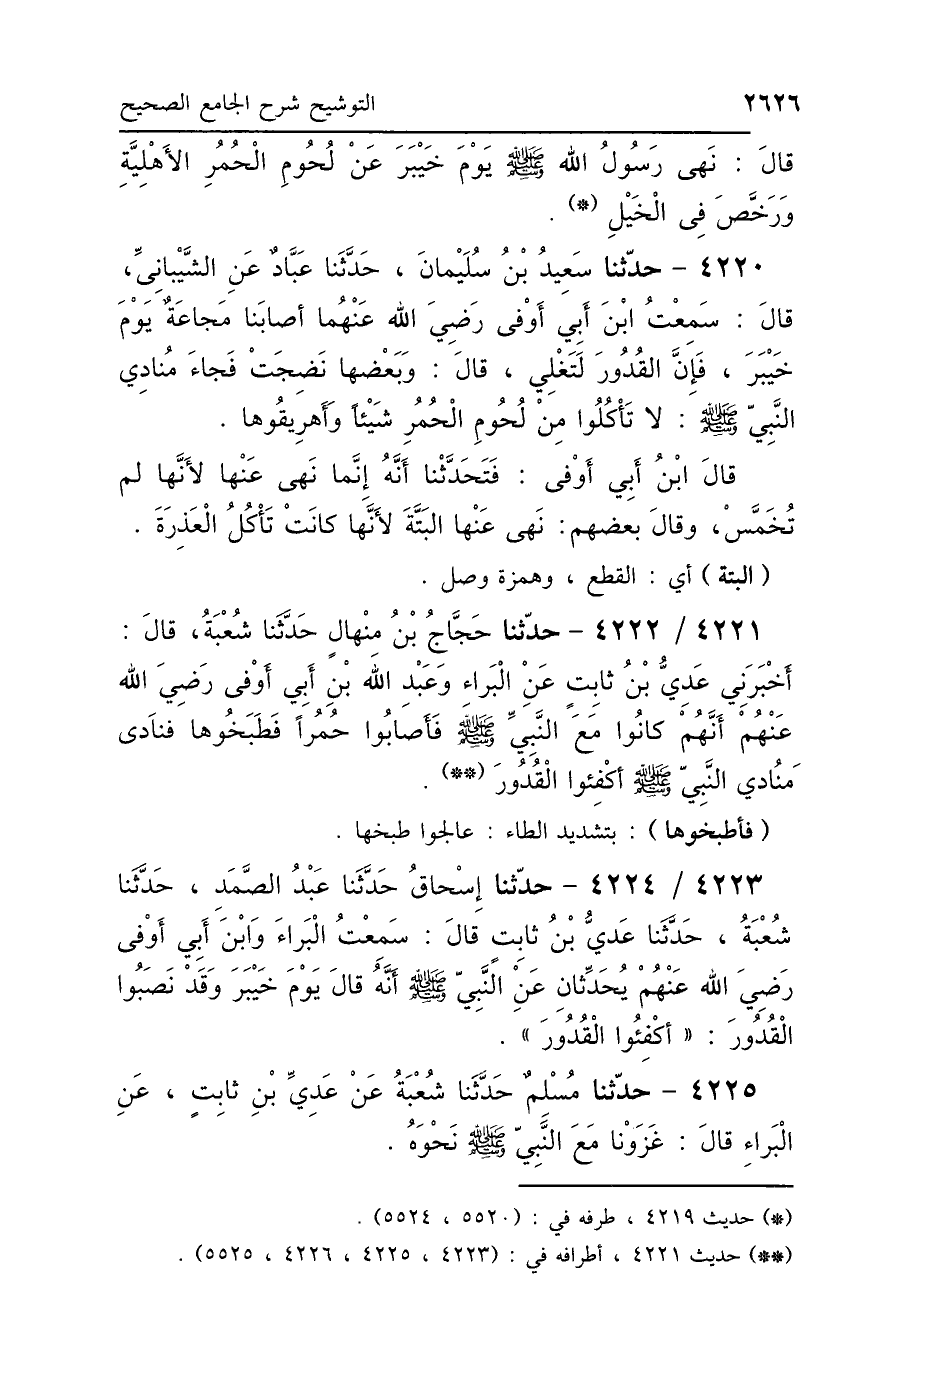 ٢٦٢٦ التوشيح شرح الجامع الصحيح
قالَ : نَهى رَسُولُ الله ﷺ يَوْمَ خَيْبَرَ عَنْ لُحُومِ الْحُمُرِ الأَهْلِيَّةِ
وَرَخَّصَ فِى الْخَيْلِ (*) .
٤٢٢٠ - حدّثنا سَعِيدُ بْنُ سُلَيْمانَ ، حَدَّثَنا عَبَّادٌ عَنِ الشَّيْبانِيِّ،
قالَ : سَمِعْتُ ابْنَ أَبي أَوْفى رَضِيَ الله عَنْهُما أصابَنا مَجاعَةٌ يَوْمَ
خَيْبَرَ ، فَإِنَّ القُدُورَ لَتَغْلِي ، قالَ : وَبَعْضها نَضِجَتْ فَجاءَ مُنادِي
النَّبِيّ ﷺ : لا تَأْكُلُوا مِنْ لُحُومِ الْحُمُرِ شَيْئاً وَأَهرِيقُوها .
قالَ ابْنُ أَبي أَوْفى : فَتَحَدَّثْنا أَنَّهُ إِنَّما نَهى عَنْها لأَنَّها لم
تُخَمَّسْ، وقالَ بعضهم: نَهى عَنْها البَتَّةَ لأَنَّها كانَتْ تَأْكُلُ الْعَذِرَةَ .
( البتة ) أي : القطع ، وهمزة وصل .
٤٢٢١ / ٤٢٢٢ - حدّثنا حَجَّاجُ بْنُ مِنْهالٍ حَدَّثَنا شُعْبَةُ، قالَ :
أَخْبَرَنِي عَدِيُّ بْنُ ثابِتٍ عَنْ الْبَراءِ وَعَبْدِ الله بْنِ أَبي أَوْفى رَضِيَ الله
عَنْهُمْ أَنَّهُمْ كانُوا مَعَ النَّبِيِّ ﷺ فَأَصابُوا حُمُراً فَطَبَخُوها فنادَى
مُنادي النَّبِيّ ﷺ أكْفِئوا الْقُدُورَ (**) .
( فأطبخوها ) : بتشديد الطاء : عالجوا طبخها .
٤٢٢٣ / ٤٢٢٤ - حدّثنا إِسْحاقُ حَدَّثَنا عَبْدُ الصَّمَدِ ، حَدَّثَنا
شُعْبَةُ ، حَدَّثَنا عَدِيُّ بْنُ ثابِتٍ قالَ : سَمِعْتُ الْبَراءَ وَابْنَ أَبي أَوْفى
رَضِيَ الله عَنْهُمْ يُحَدِّثانِ عَنْ النَّبِيّ ﷺ أَنَّهُ قالَ يَوْمَ خَيْبَرَ وَقَدْ نَصَبُوا
الْقُدُورَ : « أكْفِئُوا الْقُدُورَ » .
٤٢٢٥ - حدّثنا مُسْلِمٌ حَدَّثَنا شُعْبَةُ عَنْ عَدِيِّ بْنِ ثابِتٍ ، عَنِ
الْبَراءِ قالَ : غَزَوْنا مَعَ النَّبِيّ ﷺ نَحْوَهُ .
(*) حديث ٤٢١٩ ، طرفه في : (٥٥٢٠ ، ٥٥٢٤) .
(**) حديث ٤٢٢١ ، أطرافه في : (٤٢٢٣ ، ٤٢٢٥ ، ٤٢٢٦ ، ٥٥٢٥) .